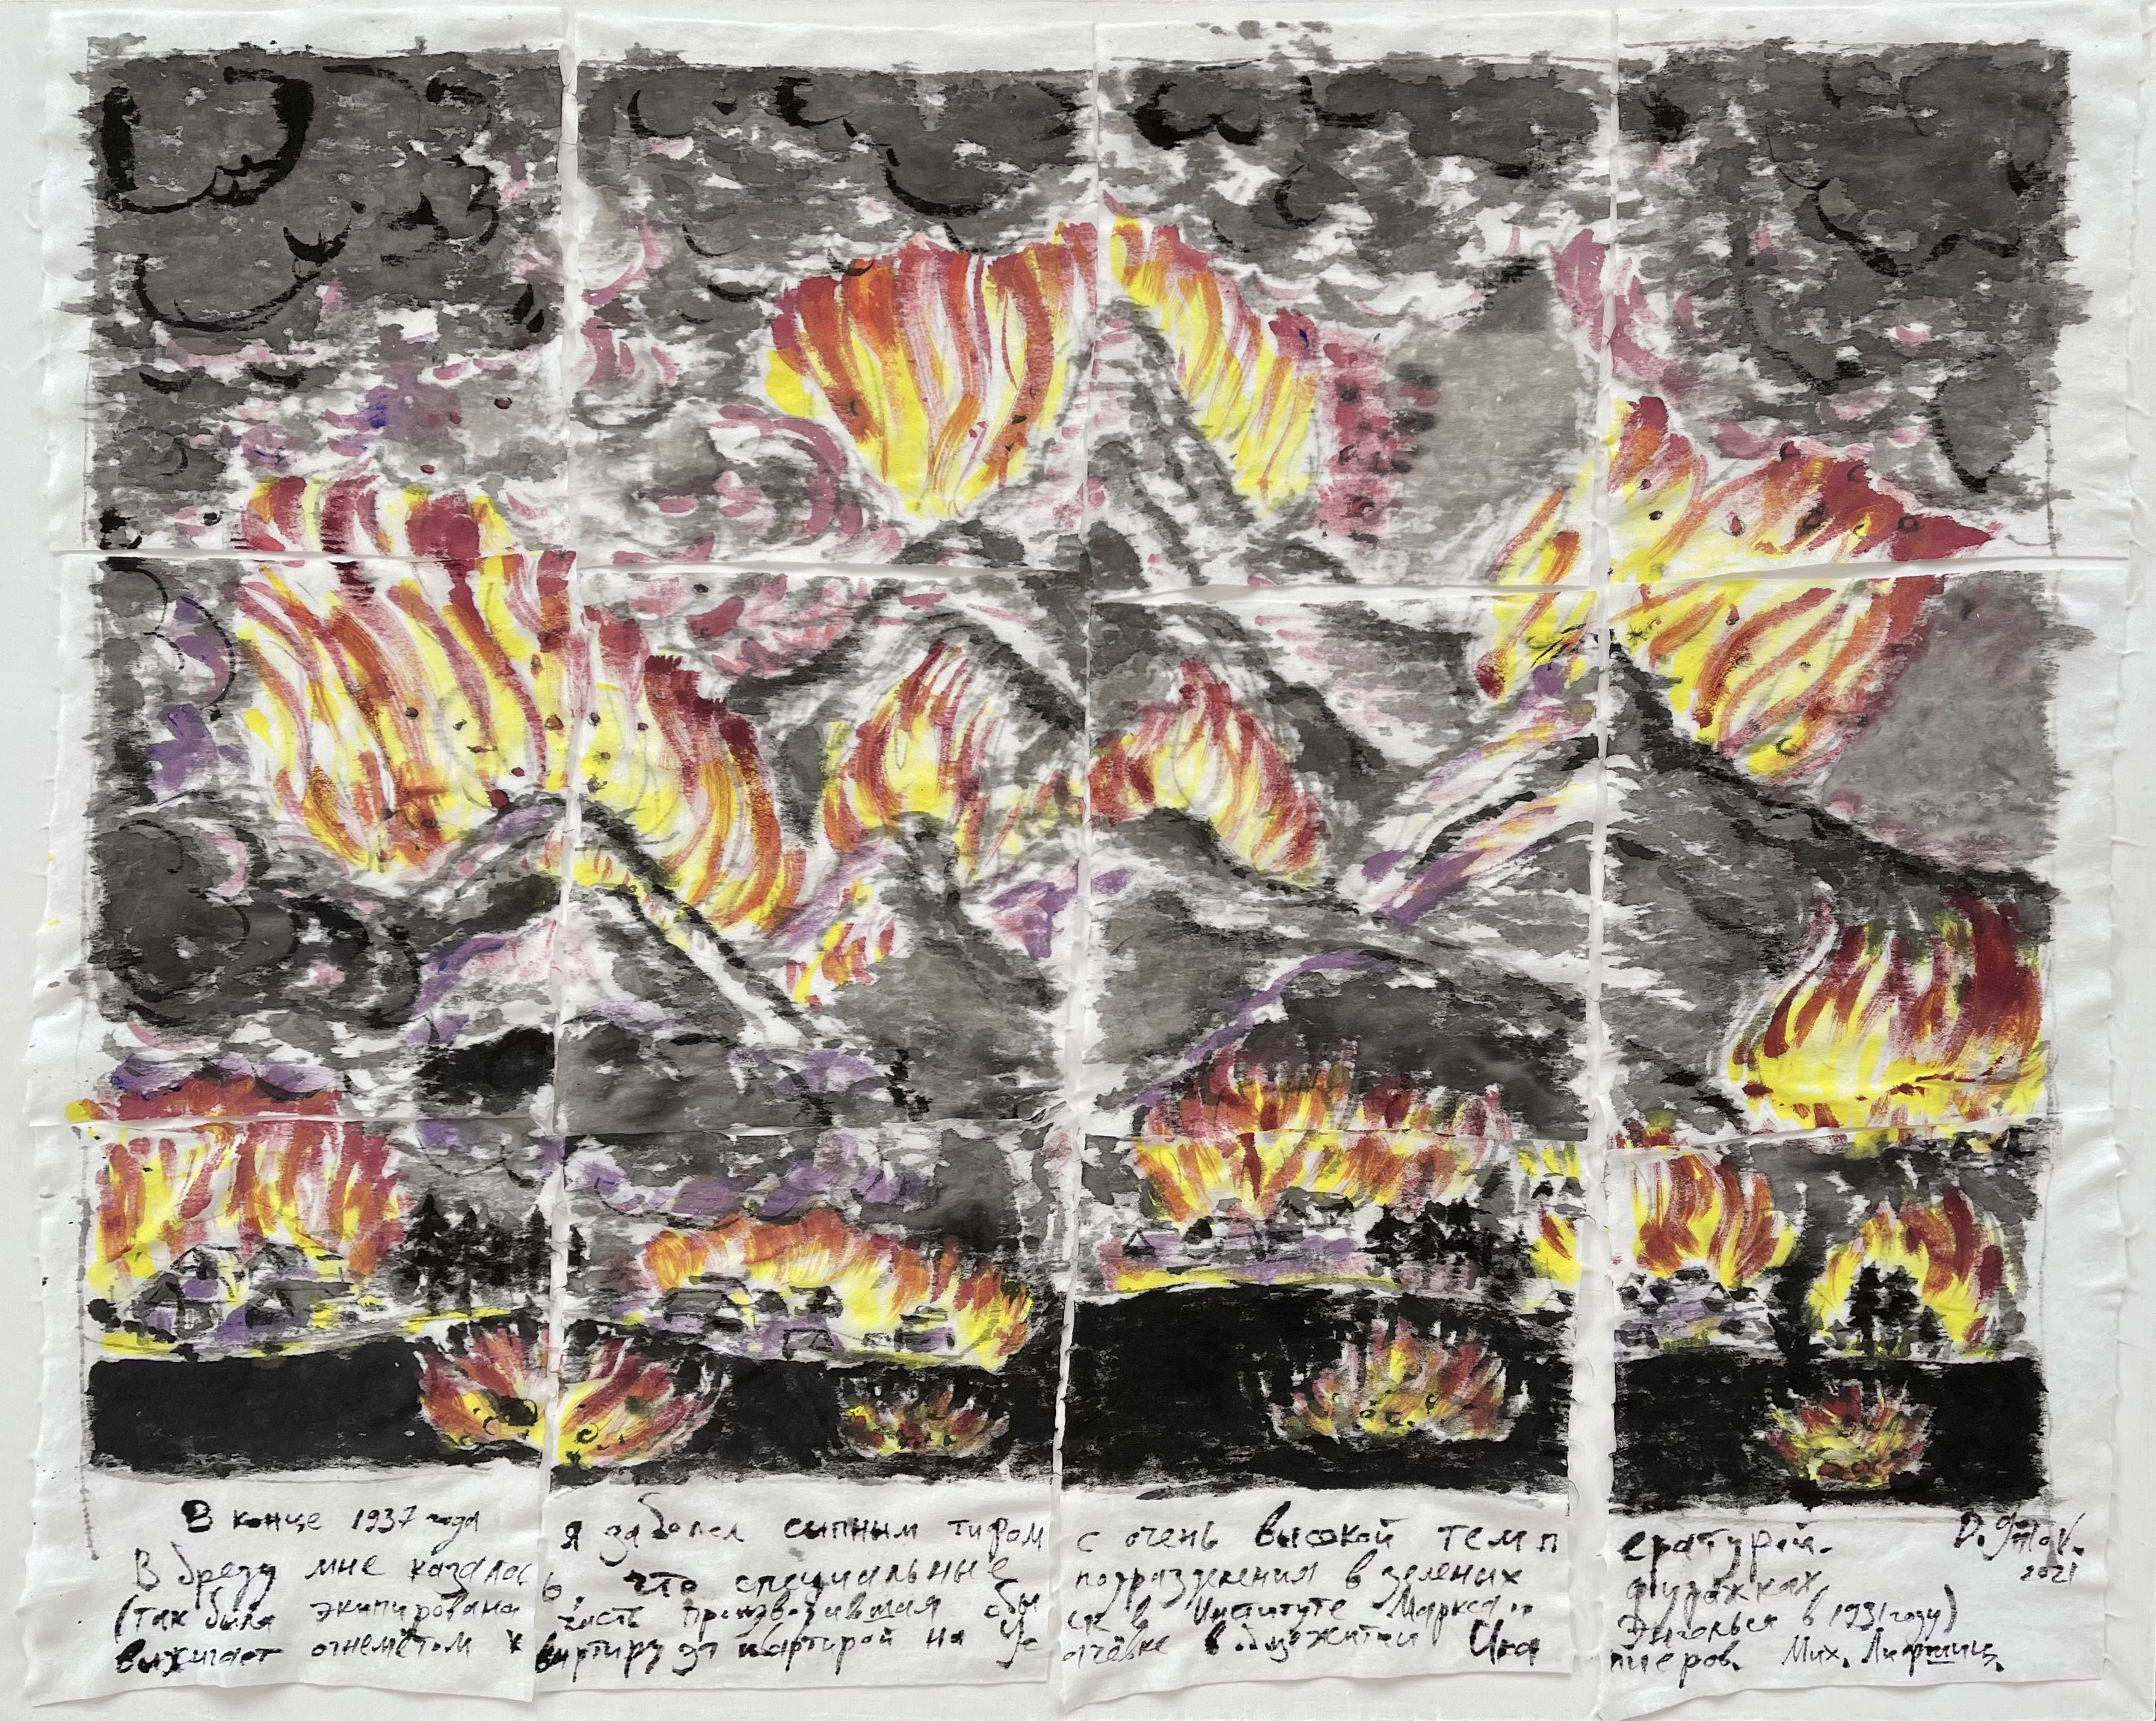 В конце 1937 года я заболел сыпным тифом с очень высокой температурой.
В бреду мне казалось, что специальные подразделения в зеленых фуражках,
(так была экипирована часть производившая обыск в Институте Маркса и Энгельса в 1931 году)
выжигают огнемётом квартиру за квартирой на Усачёвке в общежитии Мих. Лифшиц.
D. Gutov.
2021